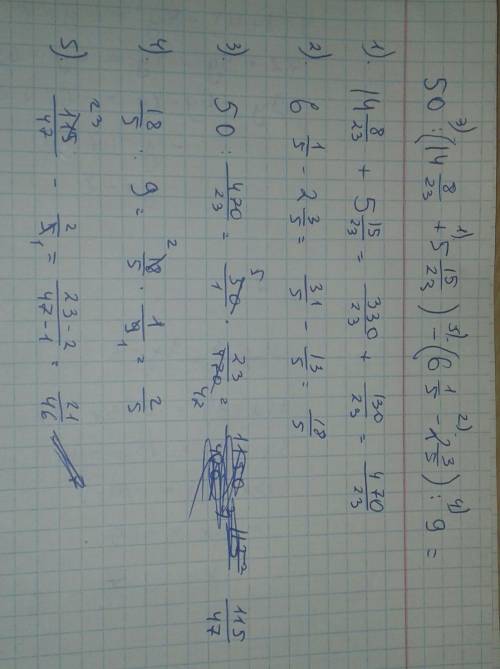 50 : (14 8/23 + 5 15/23) - (6 1/5 - 2 3/5) : 9 =
3) 1) 5). 2) 4)
1). 14 8/23 + 5 15/23 = 330/23 + 130/23 = 470/23
2). 6 1/5 - 2 3/5 = 31/5 - 13/5 = 18/5
3). 50 : 470/23 = 50/1 · 23/470 = 115/47
5 47
4). 18/5 : 9 = 18/5 · 1/9 = 2/5
2 1
5). 115/47 - 2/5 = 23-2/47-1 = 21/46
23 1